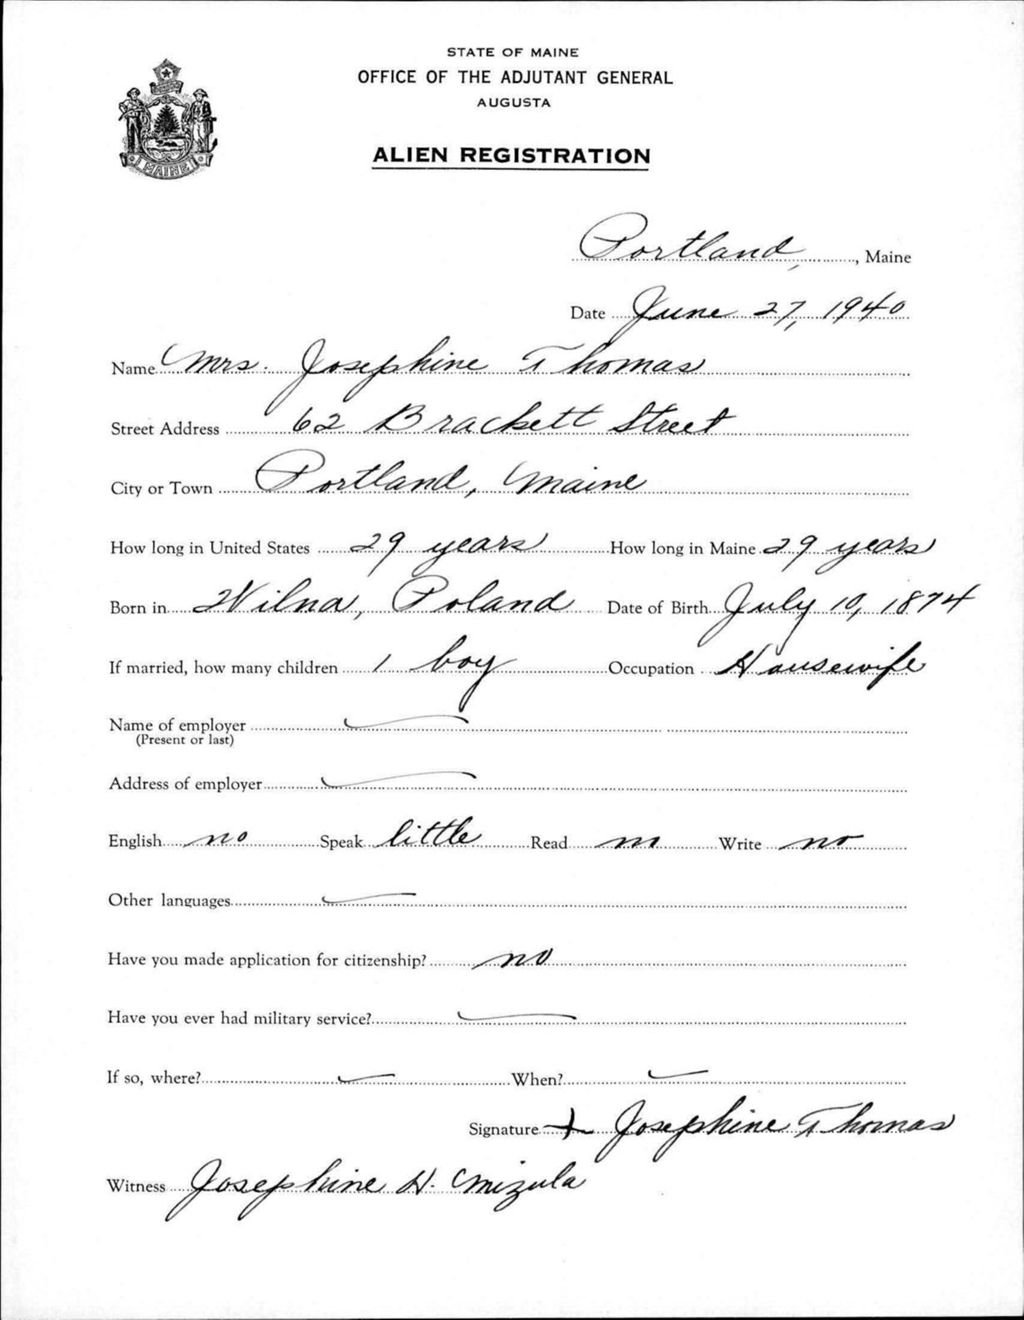 STATE OF MAINE
OFFICE OF THE ADJUTANT GENERAL
AUGUSTA
ALIEN REGISTRATION
MAINE
Portland, , Maine
Date June 27, 1940
Name Mrs. Josephine Thomas
Street Address 62 Brackett Street
City or Town Portland, Maine
How long in United States 29 years How long in Maine 29 years
Born in Wilna, Poland Date of Birth July 10, 1874
If married, how many children 1 boy Occupation Housewife
Name of employer
(Present or last)
Address of employer
English no Speak little Read no Write no
Other languages
Have you made application for citizenship? no
Have you ever had military service?
If so, where? When?
Signature + Josephine Thomas
Witness Josephine H. Mizula